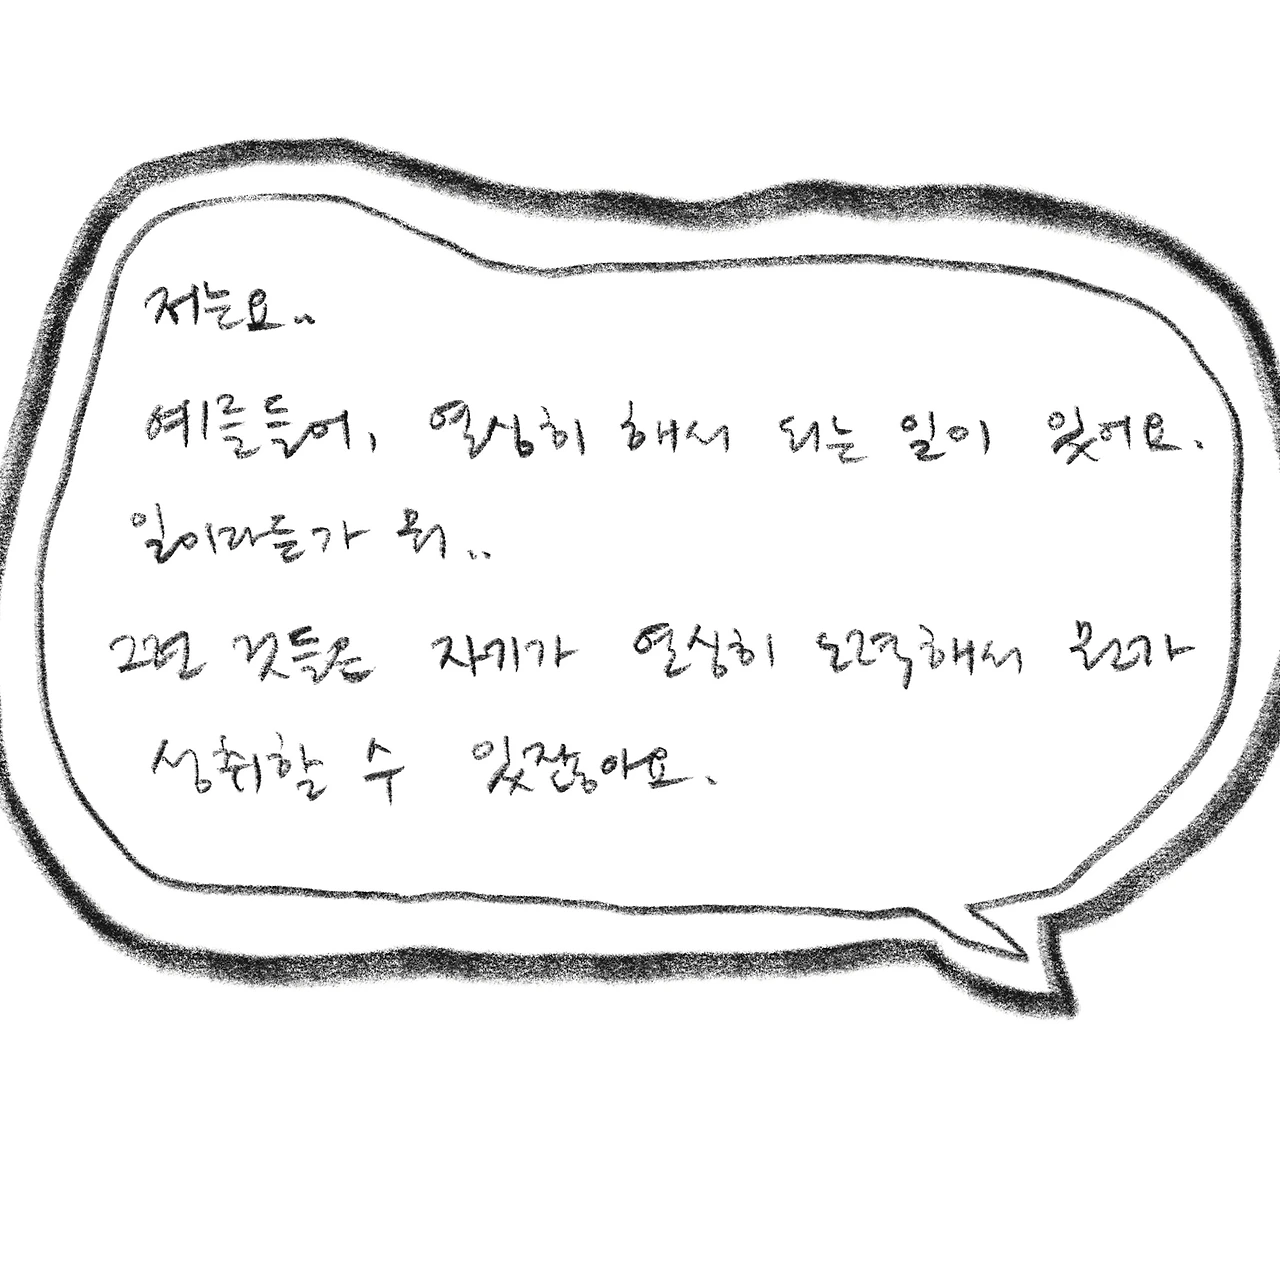 저는요..
예를들어, 열심히 해서 되는 일이 있어요.
일이라든가 뭐..
그런 것들은 자기가 열심히 노력해서 뭔가
성취할 수 있잖아요.